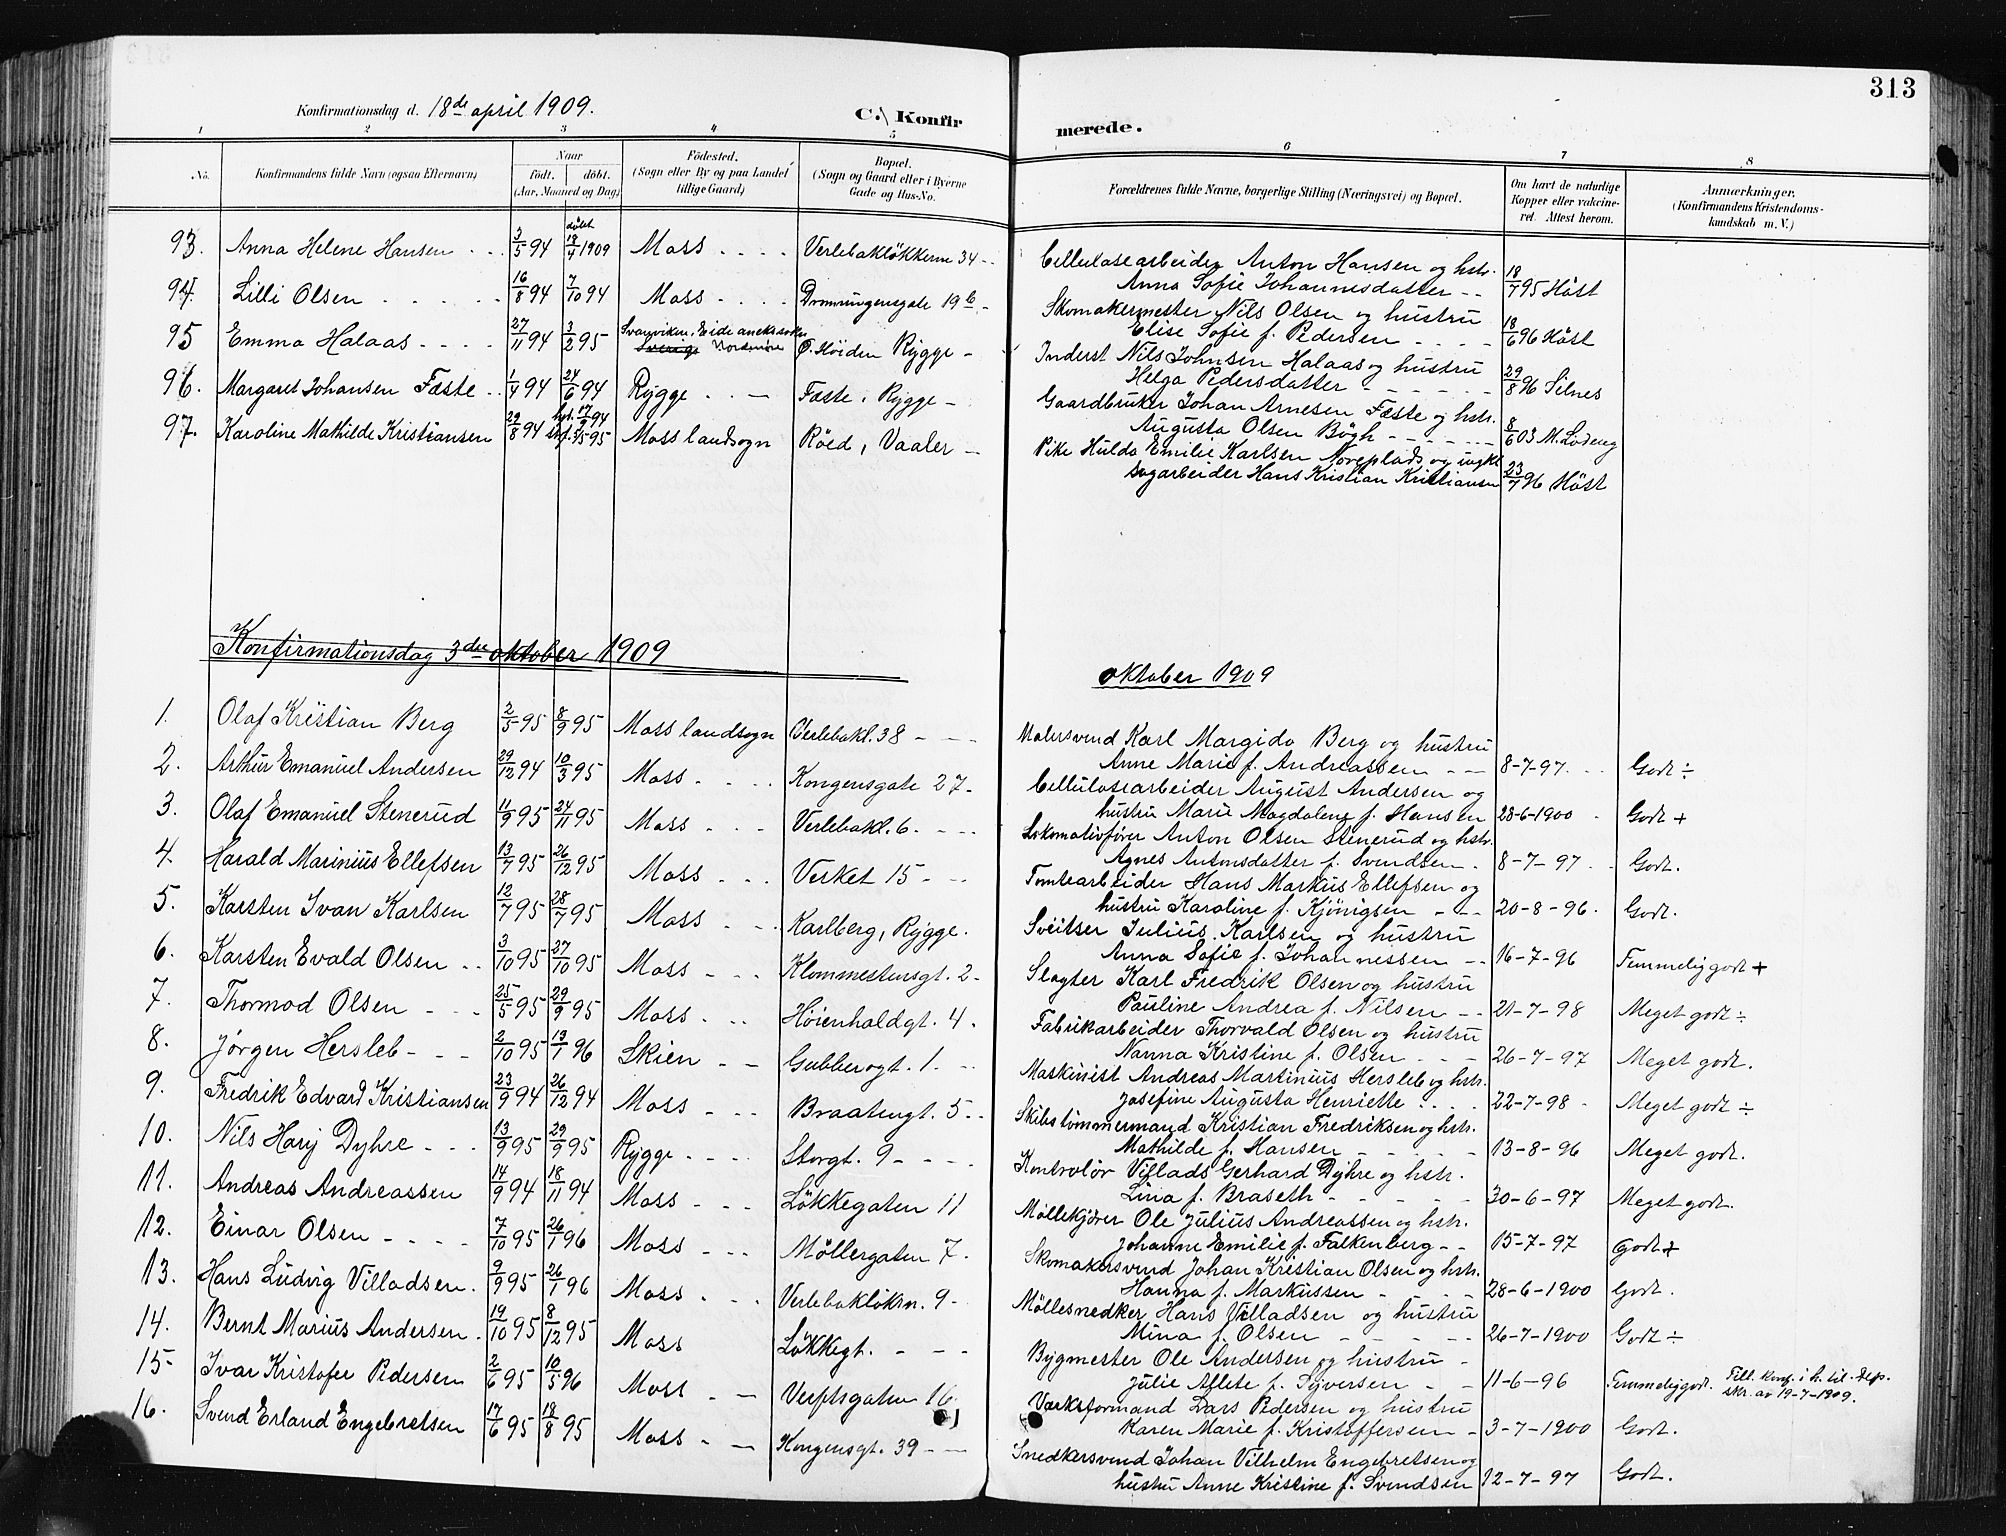 313
Konfirmationsdag d. 18de april 1909.
C. Konfir
merede.
1 2 3 4 5 6 7 8
No.
Konfirmandens fulde Navn (ogsaa Efternavn)
Naar
født. døbt.
(Aar, Maaned og Dag)
Fødested.
(Sogn eller By og paa Landet
tillige Gaard)
Bopæl.
(Sogn og Gaard eller i Byerne
Gade og Hus-No.
Forældrenes fulde Navne, borgerlige Stilling (Næringsvei) og Bopæl.
Om havt de naturlige
Kopper eller vakcine-
ret. Attest herom.
Anmærkninger.
(Konfirmandens Kristendoms-
kundskab m. V.)
93. Anna Helene Hansen 3/5 94 døbt 18/4 1909 Moss Verlebakløkkerne 34
Cellulosearbeider Anton Hansen og hstr.
Anna Sofie Johannesdatter 18/7 95 Høst
94. Lilli Olsen 16/8 94 7/10 94 Moss Dronningensgate 19b
Skomakermester Nils Olsen og hustru
Elise Sofie f. Pedersen 18/6 96 Høst
95 Emma Halaas 27/11 94 3/2 95 Svanviken, Eide anekssokn
Sverige Nordmøre Ø. Høiden Rygge
Inderst Nils Johnsen Halaas og hustru
Helga Pedersdatter 29/8 96 Silnes
96. Margaret Johansen Fæste 1/4 94 24/6 94 Rygge Fæste, Rygge
Gaardbruker Johan Arnesen Fæste og hstr.
Augusta Olsen Bøgh 8/6 03 M. Lødeng
97. Karoline Mathilde Kristiansen 29/8 94 17/9 94 5/5 95 Moss landsogn Røed, Vaaler
Pike Hulda Emilie Karlsen Noreplads og ungkl
sagarbeider Hans Kristian Kristiansen 23/7 96 Høst
Konfirmationsdag 3die oktober 1909
oktober 1909
1. Olaf Kristian Berg 2/5 95 8/9 95 Moss landsogn Verlebakl. 38
Malersvend Karl Margido Berg og hustru
Anne Marie f. Andreassen 8-7-97. Godt ÷
2. Arthur Emanuel Andersen 29/12 94 10/3 95 Moss Kongensgate 27
Cellulosearbeider August Andersen og
hustru Marie Magdalene f. Hansen 28-6-1900 Godt +
3. Olaf Emanuel Stenerud 11/9 95 24/11 95 Moss Verlebakl. 6.
Lokomotivfører Anton Olsen Stenerud og hstr.
Agnes Antonsdatter f. Svendsen 8-7-97 Godt.
4. Harald Marinius Ellefsen 13/7 95 26/12 95 Moss Verket 15
Tomtearbeider Hans Markus Ellefsen og
hustru Karoline f. Kjønigsen 20-8-96. Godt.
5. Karsten Ivan Karlsen 12/7 95 28/7 95 Moss Karlberg, Rygge.
Sveitser Julius Karlsen og hustru
Anna Sofie f. Johannessen 16-7-96 Temmelig godt +
6. Karsten Evald Olsen 3/10 95 27/10 95 Moss Klommestensgt. 2
Slagter Karl Fredrik Olsen og hustru
Pauline Andrea f. Nilsen 21-7-98 Meget godt ÷
7. Thormod Olsen 25/5 95 29/9 95 Moss Høienhaldgt. 4.
Fabrikarbeider Thorvald Olsen og hustru
Nanna Kristine f. Olsen 26-7-97 Meget godt.
8. Jørgen Hersleb 2/10 95 13/1 96 Skien Gubberogt. 1.
Maskinist Andreas Martinius Hersleb og hstr.
Josefine Augusta Henriette 22-7-98 Meget godt ÷
9. Fredrik Edvard Kristiansen 23/9 94 26/12 94 Moss Braatengt. 5
Skibstømmermand Kristian Fredriksen og hstr.
Mathilde f. Hansen 13-8-96 Meget godt.
10. Nils Harij Dyhre 13/9 95 29/9 95 Rygge Storgt. 9
Kontrolør Villads Gerhard Dyhre og hstr.
Lina f. Braseth 30-6-97 Meget godt.
11. Andreas Andreassen 14/9 94 18/11 94 Moss Løkkegaten 11
Møllekjører Ole Julius Andreassen og hstr.
Johanne Emilie f. Falkenberg 15-7-97 Godt +
12. Einar Olsen 7/10 95 26/1 96 Moss Møllergaten 7.
Skomakersvend Johan Kristian Olsen og hstr.
Hanna f. Markussen 28-6-1900 Godt.
13. Hans Ludvig Villadsen. 9/9 95 26/1 96 Moss Verlebakløkn. 9
Møllesnedker Hans Villadsen og hustru
Mina f. Olsen 26-7-1900 Godt ÷
14. Bernt Marius Andersen. 19/10 95 8/12 95 Moss Løkkegt.
Bygmester Ole Andersen og hustru
Julie Aflete f. Sijversen 11-6-96 Temmelig godt. Till. konf. i h. til. Dep.
skr. av 19-7-1909.
15 Ivar Kristofer Pedersen 2/6 95 10/5 96 Moss Verftsgaten 16
Værksformand Lars Pedersen og hustru
Karen Marie f. Kristoffersen 3-7-1900 Godt.
16. Svend Erland Engebretsen 17/6 95 18/8 95 Moss Kongensgt. 39
Snedkersvend Johan Vilhelm Engebretsen og
hustru Anne Kristine f. Svendsen 12-7-97 Godt.